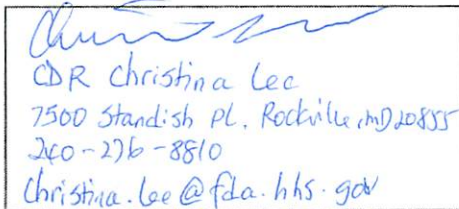 CDR Christina Lee
7500 Standish Pl. Rockville, MD 20855
240-276-8810
christina.lee@fda.hhs.gov